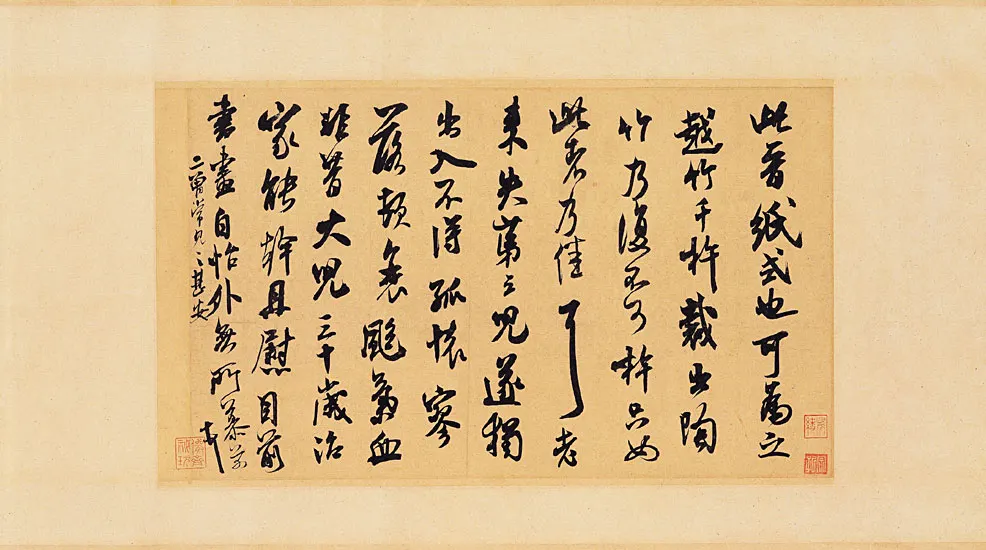 此晉紙式也可為之
越竹千杵裁出陶
竹乃復不可杵只如
此者乃佳耳老
來失第三兒遂獨
出入不得孤懷寥
落頓衰 氣血
非昔大兒三十歲治
家能幹且慰目前
書畫自怡外無所慕芾
二曾常見之甚安